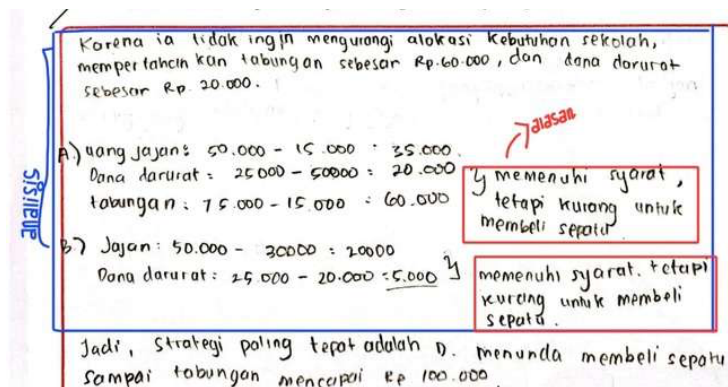 Karena ia tidak ingin mengurangi alokasi kebutuhan sekolah,
mempertahankan tabungan sebesar Rp.60.000, dan dana darurat
sebesar Rp. 20.000.
alasan
analisis
A.) uang jajan: 50.000 - 15.000 : 35.000.
Dana darurat : 25000 - 50000 : 20.000
tabungan : 75.000 - 15.000 : 60.000
memenuhi syarat,
tetapi kurang untuk
membeli sepatu.
B.) Jajan: 50.000 - 30000 : 20000
Dana darurat : 25.000 - 20.000 : 5.000
memenuhi syarat. tetapi
kurang untuk membeli
sepatu.
Jadi, strategi paling tepat adalah D. menunda membeli sepatu
sampai tabungan mencapai Rp 100.000